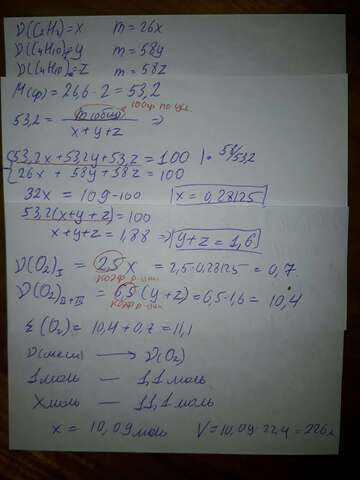 ν(C₂H₂)=x m=26x
ν(C₄H₁₀)=y m=58y
ν(C₄H₁₀)=z m=58z
M(ср)=26,6·2=53,2
100гр по усл.
53,2 = m общ / x+y+z =>
{53,2x+53,2y+53,2z=100 | · 58/53,2
{26x + 58y+58z=100
32x = 109-100 x=0,28125
53,2(x+y+z)=100
x+y+z=1,88 => y+z=1,6
ν(O₂)I = 2,5x = 2,5·0,28125 = 0,7
коэфф-ент
ν(O₂)II+III = 6,5(y+z)=6,5·1,6 = 10,4
коэфф-ент
Σ(O₂) = 10,4+0,7=11,1
ν(смеси) → ν(O₂)
1 моль — 1,1 моль
x моль — 11,1 моль
x = 10,09 моль V=10,09·22,4=226л